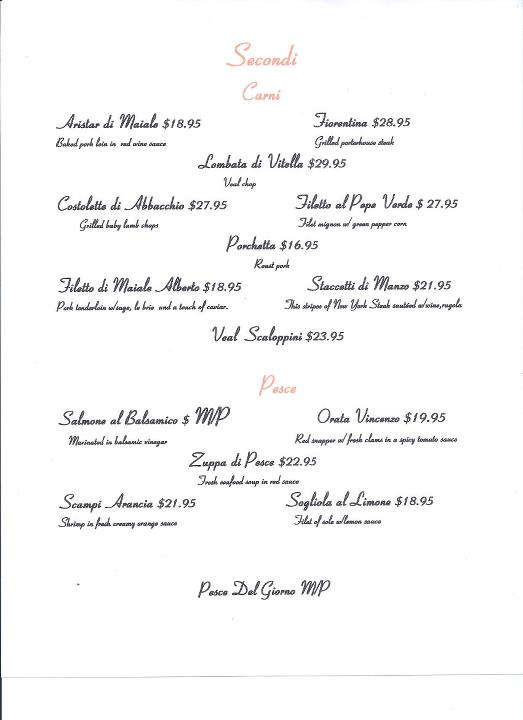 Secondi
Carni
Aristar di Maiale $18.95
Baked pork loin in red wine sauce
Fiorentina $28.95
Grilled porterhouse steak
Lombata di Vitella $29.95
Veal chop
Costolette di Abbacchio $27.95
Grilled baby lamb chops
Filetto al Pepe Verde $ 27.95
Filet mignon w/ green pepper corn
Porchetta $16.95
Roast pork
Filetto di Maiale Alberto $18.95
Pork tenderloin w/sage, le brie and a touch of caviar.
Staccetti di Manzo $21.95
This stripes of New York Steak sautéed w/wine,rugola
Veal Scaloppini $23.95
Pesce
Salmone al Balsamico $ M/P
Marinated in balsamic vinegar
Orata Vincenzo $19.95
Red snapper w/ fresh clams in a spicy tomato sauce
Zuppa di Pesce $22.95
Fresh seafood soup in red sauce
Scampi Arancia $21.95
Shrimp in fresh creamy orange sauce
Sogliola al Limone $18.95
Filet of sole w/lemon sauce
Pesce Del Giorno M/P